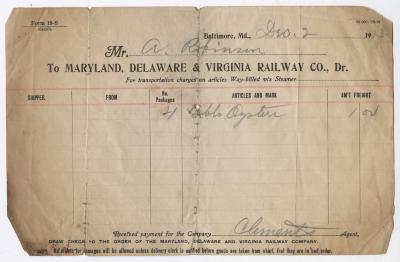 Form 18-S
Baltimore, Md., Dec. 2 19
Mr. A. Robinson
To MARYLAND, DELAWARE & VIRGINIA RAILWAY CO., Dr.
For transportation charges on articles Way-billed via Steamer
SHIPPER. FROM No. Packages ARTICLES AND MARK AM'T FREIGHT
4 Bbls Oysters 1 00
Received payment for the Company Clements Agent,
DRAW CHECK TO THE ORDER OF THE MARYLAND, DELAWARE AND VIRGINIA RAILWAY COMPANY.
No claims for damages will be allowed unless delivery clerk is notified before goods are taken from wharf, that they are in bad order.